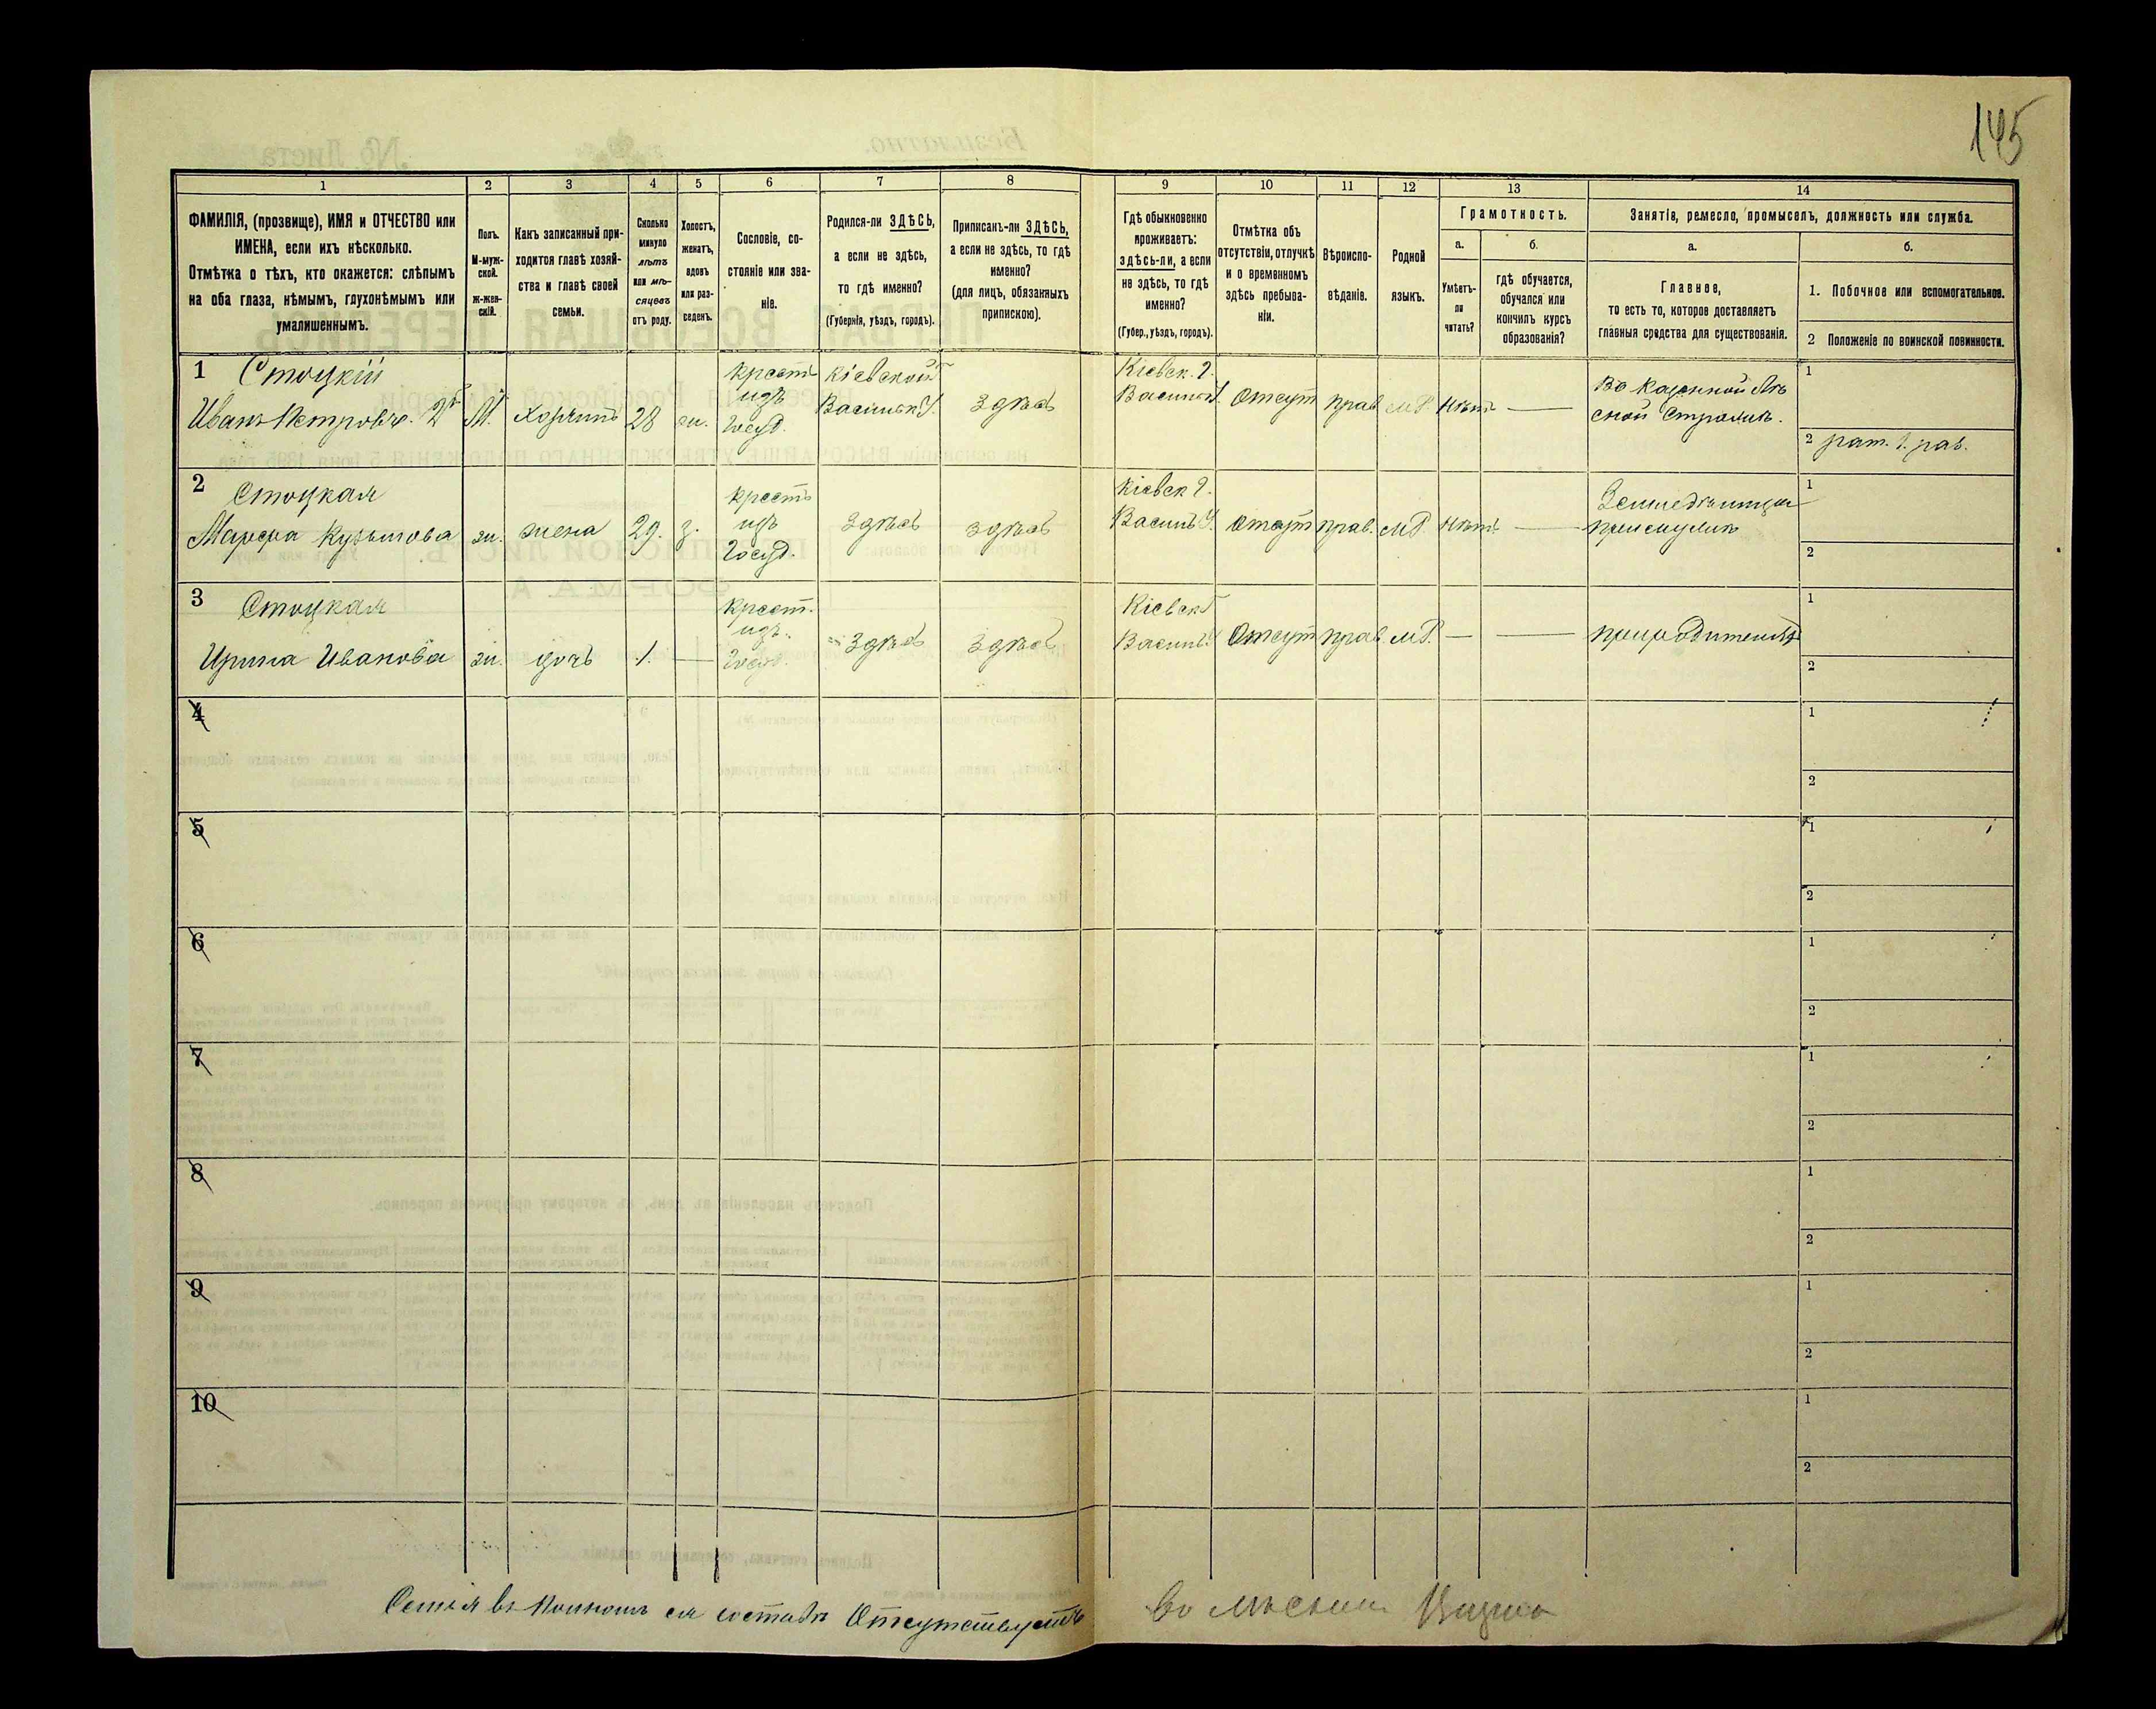 145
1 2 3 4 5 6 7 8 9 10 11 12 13 14
ФАМИЛІЯ, (прозвище), ИМЯ и ОТЧЕСТВО или
ИМЕНА, если ихъ нѣсколько.
Отмѣтка о тѣхъ, кто окажется: слѣпымъ
на оба глаза, нѣмымъ, глухонѣмымъ или
умалишеннымъ.
Полъ.
М-муж-
ской.
ж-жен-
скій.
Какъ записанный при-
ходится главѣ хозяй-
ства и главѣ своей
семьи.
Сколько
минуло
лѣтъ
или мѣ-
сяцевъ
отъ роду.
Холостъ,
женатъ,
вдовъ
или раз-
веденъ.
Сословіе, со-
стояніе или зва-
ніе.
Родился-ли ЗДѢСЬ,
а если не здѣсь,
то гдѣ именно?
(Губернія, уѣздъ, городъ).
Приписанъ-ли ЗДѢСЬ,
а если не здѣсь, то гдѣ
именно?
(для лицъ, обязанныхъ
припискою).
Гдѣ обыкновенно
проживаетъ:
здѣсь-ли, а если
не здѣсь, то гдѣ
именно?
(Губер., уѣздъ, городъ).
Отмѣтка объ
отсутствіи, отлучкѣ
и о временномъ
здѣсь пребыва-
ніи.
Вѣроиспо-
вѣданіе.
Родной
языкъ.
Грамотность.
а.
Умѣетъ-
ли
читать?
б.
гдѣ обучается,
обучался или
кончилъ курсъ
образованія?
Занятіе, ремесло, промыселъ, должность или служба.
а.
Главное,
то есть то, которое доставляетъ
главныя средства для существованія.
б.
1. Побочное или вспомогательное.
2 Положеніе по воинской повинности.
1 Стоцкій
Иванъ Петровъ. 2й М. хозяинъ 28 ж.
крест
изъ
Госуд.
Кіевской Г
Васильк У.
Здѣсь
Кіевск. Г.
Васильк У.
Отсут прав М.Р. Нѣтъ —
Въ Казенной Лѣ
сной Стражѣ.
1
2 рат. 1. раз.
2 Стоцкая
Марфа Кузьмова ж. жена 29. з.
крест
изъ
Госуд.
Здѣсь Здѣсь
Кіевск Г.
Васильк У.
Отсут прав. М.Р. Нѣтъ —
Земледѣлица
при мужѣ
1
2
3 Стоцкая
Ирина Иванова ж. дочь 1. —
крест.
изъ.
Госуд.
Здѣсь Здѣсь
Кіевск Г
Васильк У
Отсут прав М.Р. — —
при родителяхъ
1
2
4 1
2
5 1
2
6 1
2
7 1
2
8 1
2
9 1
2
10 1
2
Семья въ полномъ ея составѣ Отсутствуетъ